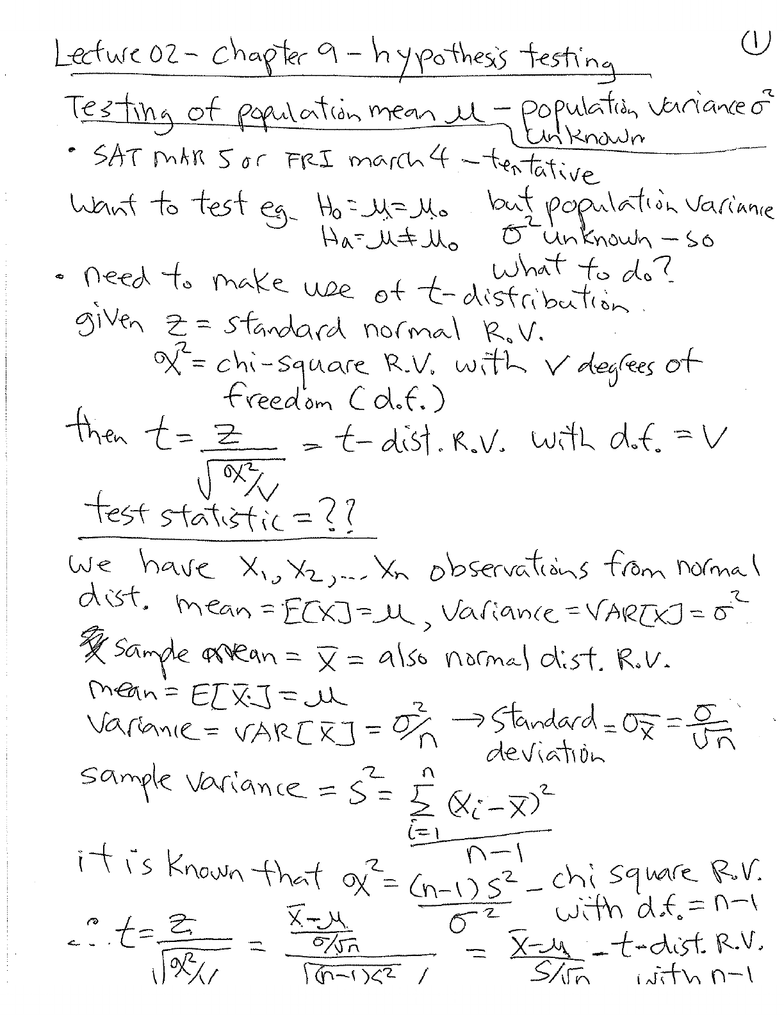 Lecture 02 - chapter 9 - hypothesis testing ①
Testing of population mean μ - population variance σ²
unknown
• SAT MAR 5 or FRI march 4 - tentative
Want to test eg. H₀ = μ = μ₀ but population variance
Ha = μ ≠ μ₀ σ² unknown - so
what to do?
• need to make use of t-distribution.
given Z = standard normal R.V.
χ² = chi-square R.V. with v degrees of
freedom (d.f.)
then t = Z / √(χ²/v) = t-dist. R.V. with d.f. = V
test statistic = ??
we have X₁, X₂, .... Xn observations from normal
dist. mean = E[X] = μ, Variance = VAR[X] = σ²
sample mean = X̄ = also normal dist. R.V.
mean = E[X̄] = μ
Variance = VAR[X̄] = σ²/n → Standard deviation = σx̄ = σ/√n
sample variance = S² = Σ i=1 n (Xi - X̄)² / n-1
it is known that χ² = (n-1)S² / σ² - chi square R.V.
with d.f. = n-1
∴ t = Z / √(χ²/v) = (X̄-μ / σ/√n) / √(n-1)S² / = X̄-μ / S/√n - t-dist. R.V.
with n-1